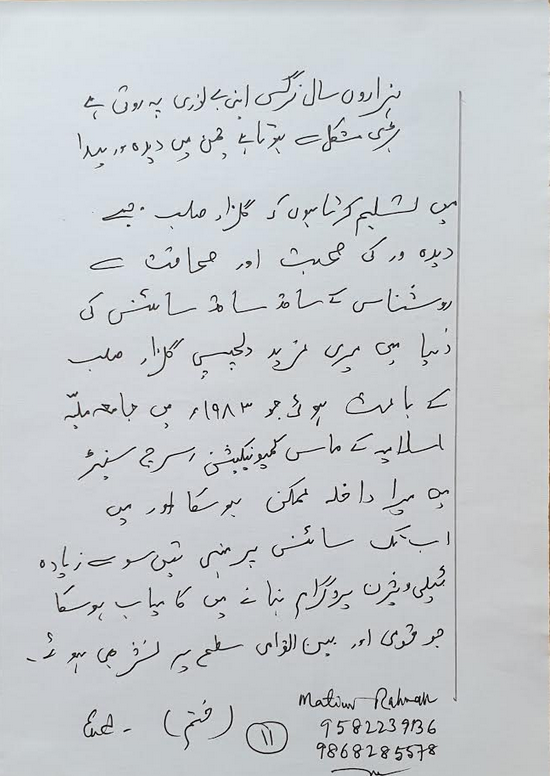 ہزاروں سال نرگس اپنی بے نوری پہ روتی ہے
بڑی مشکل سے ہوتا ہے چمن میں دیدہ ور پیدا
میں تسلیم کرتا ہوں کہ گلزار صاحب جیسے
دیدہ ور کی صحبت اور صحافت سے
روشناسی کے ساتھ ساتھ سائنس کی
دنیا میں میری مزید دلچسپی گلزار صاحب
کے باعث ہوئی جو ۱۹۸۳ء میں جامعہ ملیہ
اسلامیہ کے ماس کمیونیکیشن رسرچ سینٹر
میں میرا داخلہ ممکن ہو سکا اور میں
اب تک سائنس پر مبنی تین سو سے زیادہ
ٹیلی ویژن پروگرام بنانے میں کامیاب ہو سکا
جو قومی اور بین الاقوامی سطح پر نشر بھی ہوئے۔
(ختم) End -
۱۱
Matiur Rahman
9582239136
9868285578